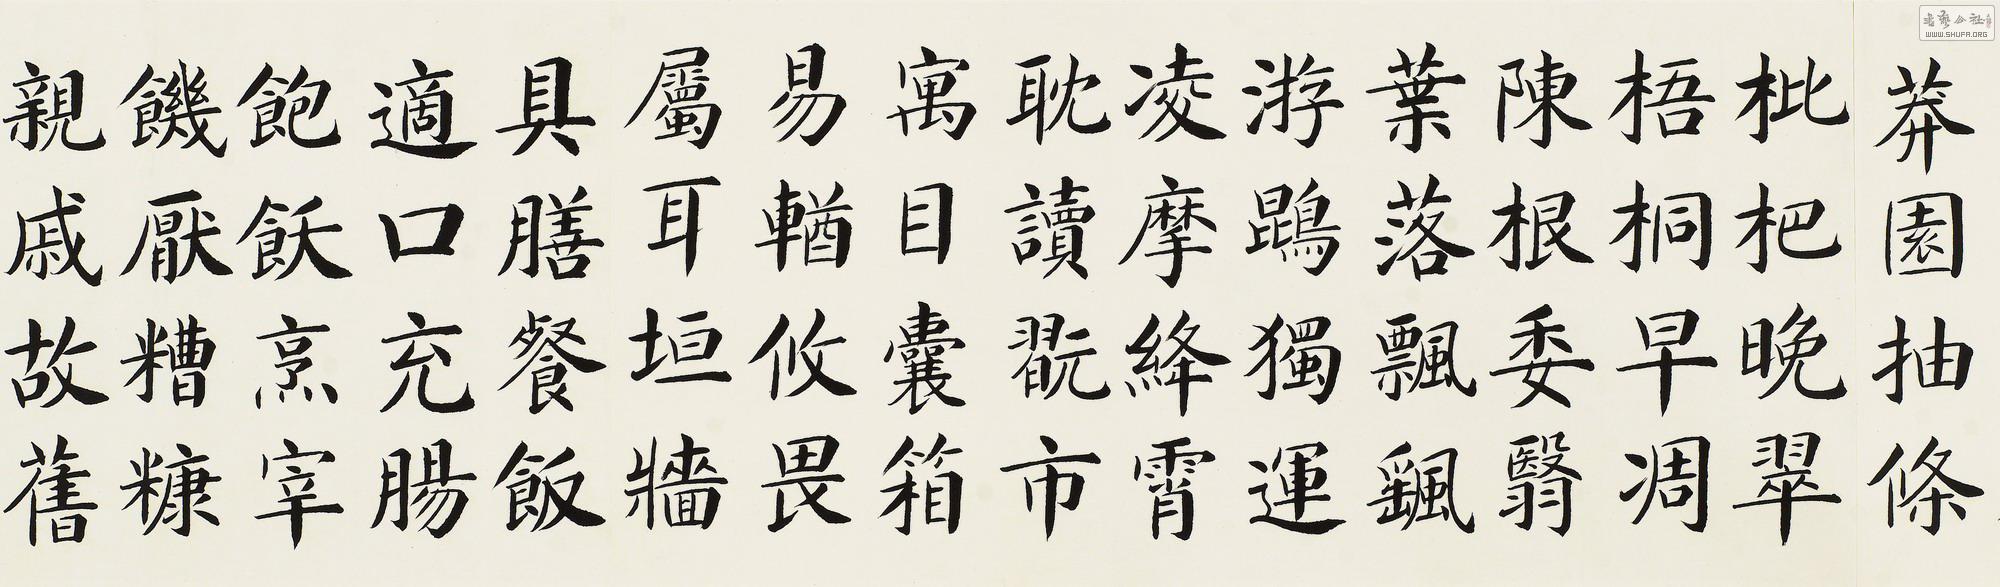 莽園抽條
枇杷晚翠
梧桐早凋
陳根委翳
葉落飄颻
游鵾獨運
凌摩絳霄
耽讀翫市
寓目囊箱
易輶攸畏
屬耳垣牆
具膳餐飯
適口充腸
飽飫烹宰
饑厭糟糠
親戚故舊
WWW.SHUFA.ORG